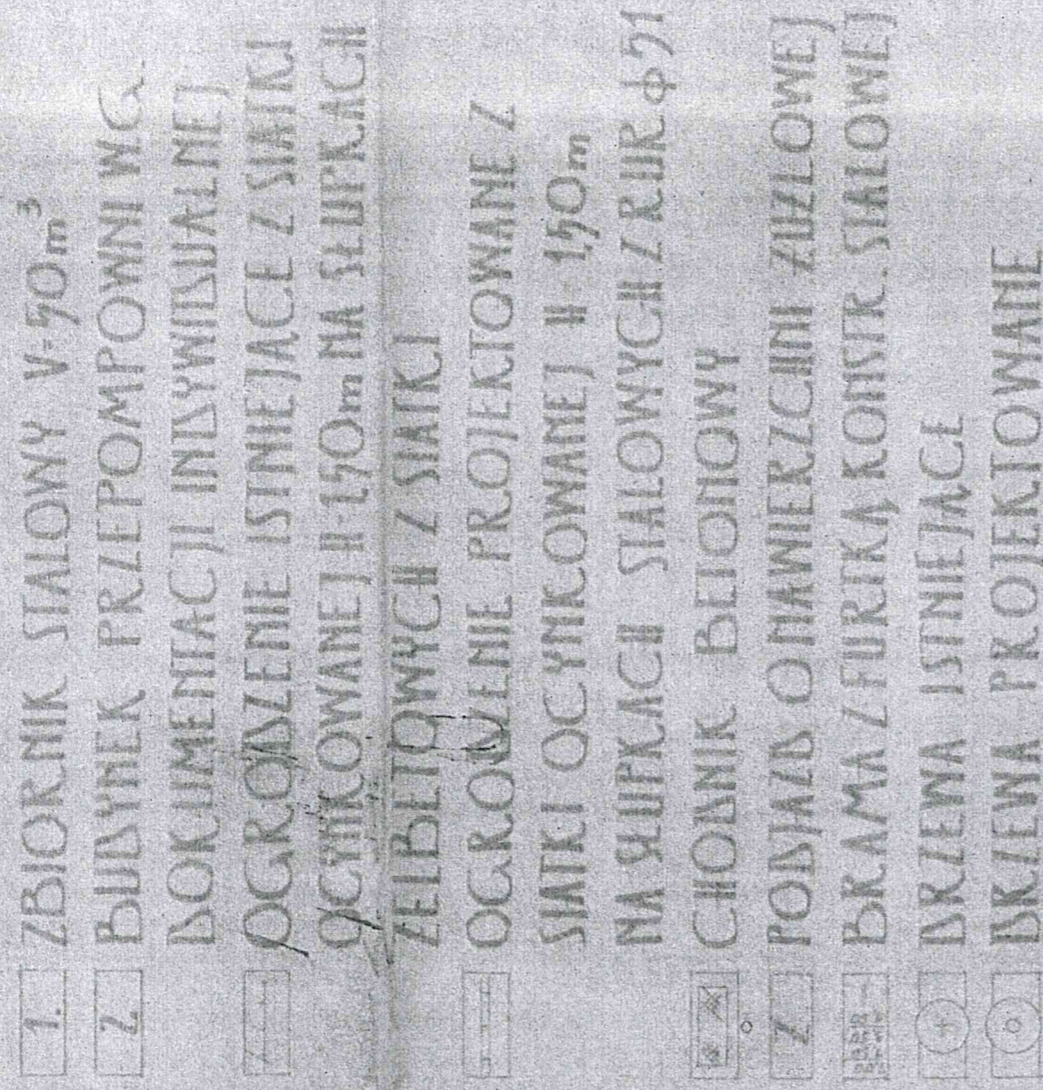 1. ZBIORNIK STALOWY V=50m³
2. BUDYNEK PRZEPOMPOWNI W.G.
DOKUMENTACJI INDYWIDUALNEJ
OGRODZENIE ISTNIEJĄCE Z SIATKI
OCYNKOWANEJ H-1,50m NA SŁUPKACH
ŻELBETOWYCH Z SIATKI
OGRODZENIE PROJEKTOWANE Z
SIATKI OCYNKOWANEJ H-1,50m
NA SŁUPKACH STALOWYCH Z RUR ϕ 51
CHODNIK BETONOWY
PODJAZD O NAWIERZCHNI ŻUŻLOWEJ
BRAMA Z FURTKĄ KONSTR. STALOWEJ
DRZEWA ISTNIEJĄCE
DRZEWA PROJEKTOWANE